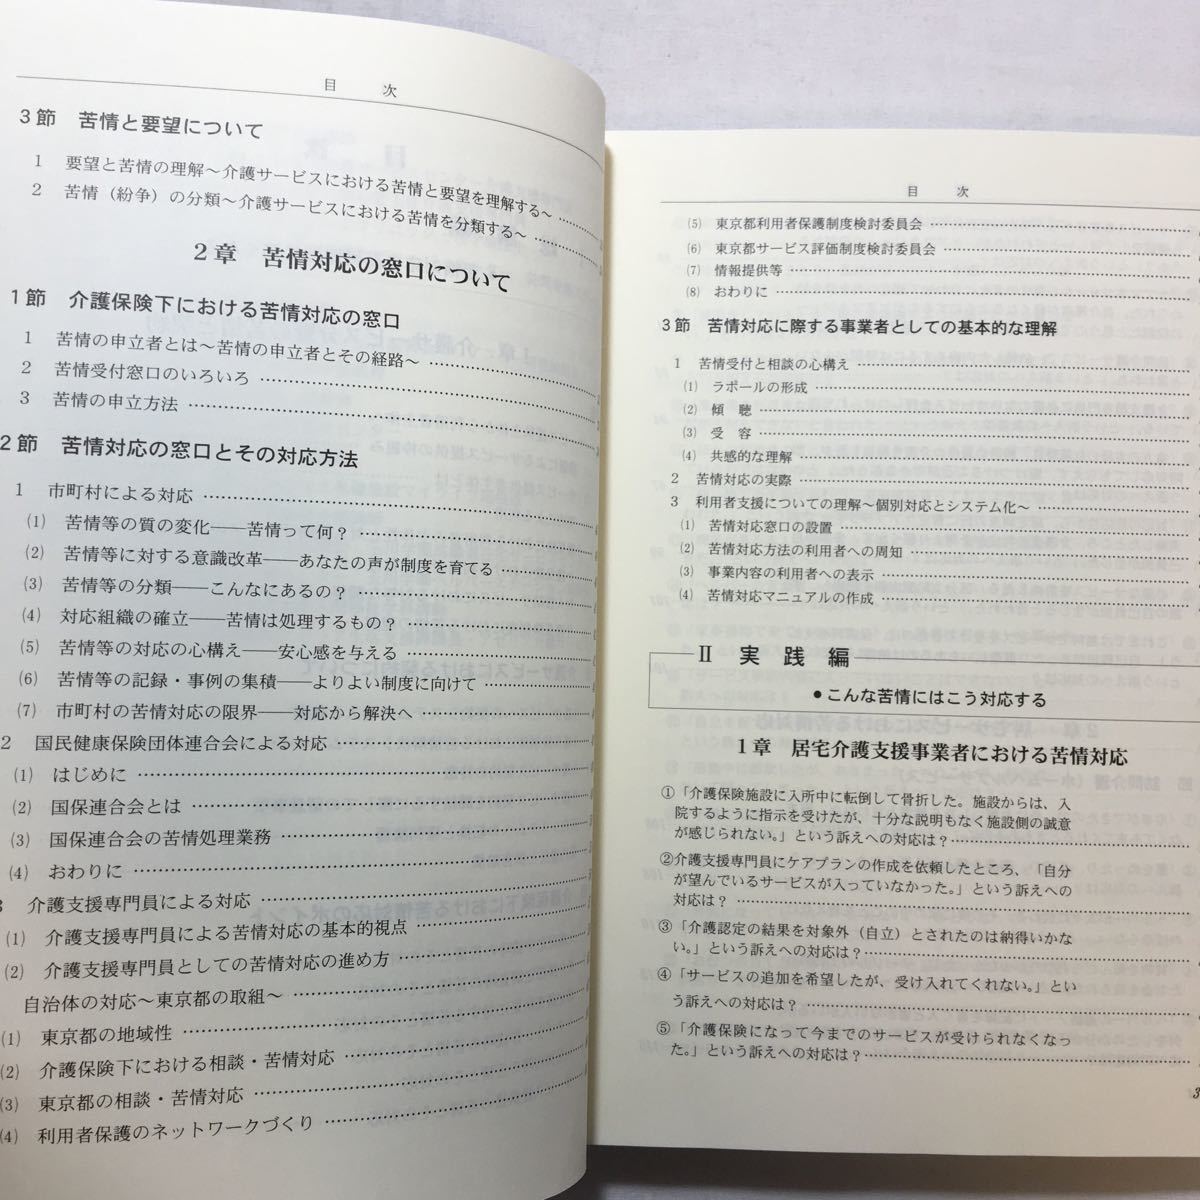 目　次
3節　苦情と要望について
1　要望と苦情の理解～介護サービスにおける苦情と要望を理解する～
2　苦情（紛争）の分類～介護サービスにおける苦情を分類する～
2章　苦情対応の窓口について
1節　介護保険下における苦情対応の窓口
1　苦情の申立者とは～苦情の申立者とその経路～
2　苦情受付窓口のいろいろ
3　苦情の申立方法
2節　苦情対応の窓口とその対応方法
1　市町村による対応
(1)　苦情等の質の変化――苦情って何？
(2)　苦情等に対する意識改革――あなたの声が制度を育てる
(3)　苦情等の分類――こんなにあるの？
(4)　対応組織の確立――苦情は処理するもの？
(5)　苦情等の対応の心構え――安心感を与える
(6)　苦情等の記録・事例の集積――よりよい制度に向けて
(7)　市町村の苦情対応の限界――対応から解決へ
2　国民健康保険団体連合会による対応
(1)　はじめに
(2)　国保連合会とは
(3)　国保連合会の苦情処理業務
(4)　おわりに
3　介護支援専門員による対応
(1)　介護支援専門員による苦情対応の基本的視点
(2)　介護支援専門員としての苦情対応の進め方
自治体の対応～東京都の取組～
(1)　東京都の地域性
(2)　介護保険下における相談・苦情対応
(3)　東京都の相談・苦情対応
(4)　利用者保護のネットワークづくり
目　次
(5)　東京都利用者保護制度検討委員会
(6)　東京都サービス評価制度検討委員会
(7)　情報提供等
(8)　おわりに
3節　苦情対応に際する事業者としての基本的な理解
1　苦情受付と相談の心構え
(1)　ラポールの形成
(2)　傾　聴
(3)　受　容
(4)　共感的な理解
2　苦情対応の実際
3　利用者支援についての理解～個別対応とシステム化～
(1)　苦情対応窓口の設置
(2)　苦情対応方法の利用者への周知
(3)　事業内容の利用者への表示
(4)　苦情対応マニュアルの作成
Ⅱ　実践編
●こんな苦情にはこう対応する
1章　居宅介護支援事業者における苦情対応
①「介護保険施設に入所中に転倒して骨折した。施設からは、入
院するように指示を受けたが、十分な説明もなく施設側の誠意
が感じられない。」という訴えへの対応は？
②介護支援専門員にケアプランの作成を依頼したところ、「自分
が望んでいるサービスが入っていなかった。」という訴えへの
対応は？
③「介護認定の結果を対象外（自立）とされたのは納得いかな
い。」という訴えへの対応は？
④「サービスの追加を希望したが、受け入れてくれない。」とい
う訴えへの対応は？
⑤「介護保険になって今までのサービスが受けられなくなっ
た。」という訴えへの対応は？
3